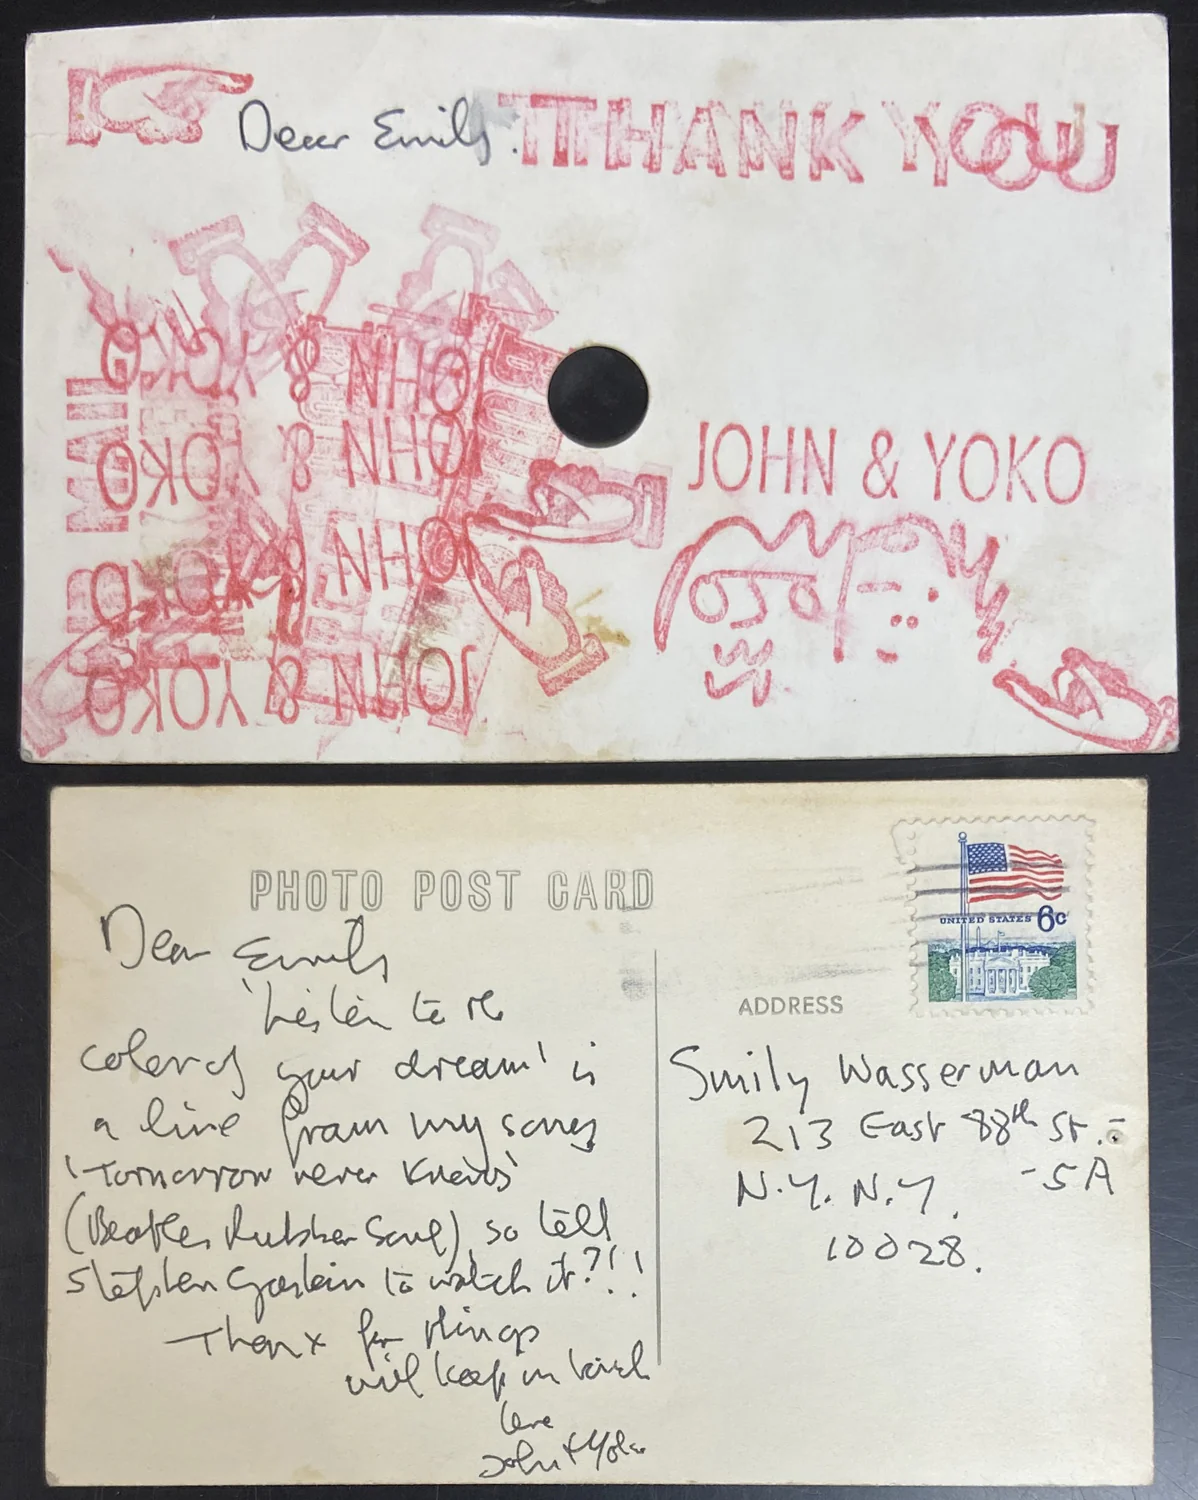 Dear Emily. THANK YOU
JOHN & YOKO
MAIL
JOHN & YOKO
JOHN & YOKO
JOHN & YOKO
JOHN & YOKO
PHOTO POST CARD
Dear Emily
'Listen to the
color of your dream' is
a line from my song
'Tomorrow never knows'
(Beatles Rubber Soul), so tell
Stephen to watch it?!!
Thanx for things
will keep in touch
love
John & Yoko
UNITED STATES 6c
ADDRESS
Emily Wasserman
213 East 88th St. -
N.Y. N.Y. -5A
10028.